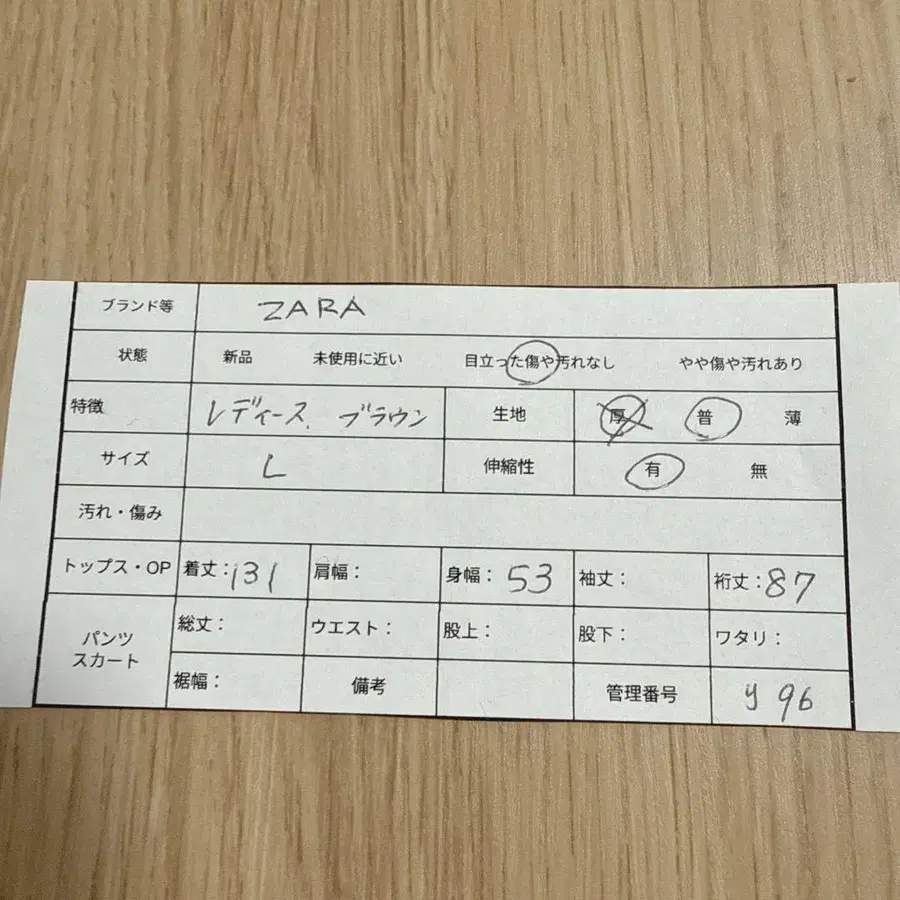 ブランド等 ZARA
状態 新品 未使用に近い 目立った傷や汚れなし やや傷や汚れあり
特徴 レディース、ブラウン 生地 厚 普 薄
サイズ L 伸縮性 有 無
汚れ・傷み
トップス・OP 着丈:131 肩幅: 身幅:53 袖丈: 裄丈:87
パンツ
スカート
総丈: ウエスト: 股上: 股下: ワタリ:
裾幅: 備考 管理番号 y 96